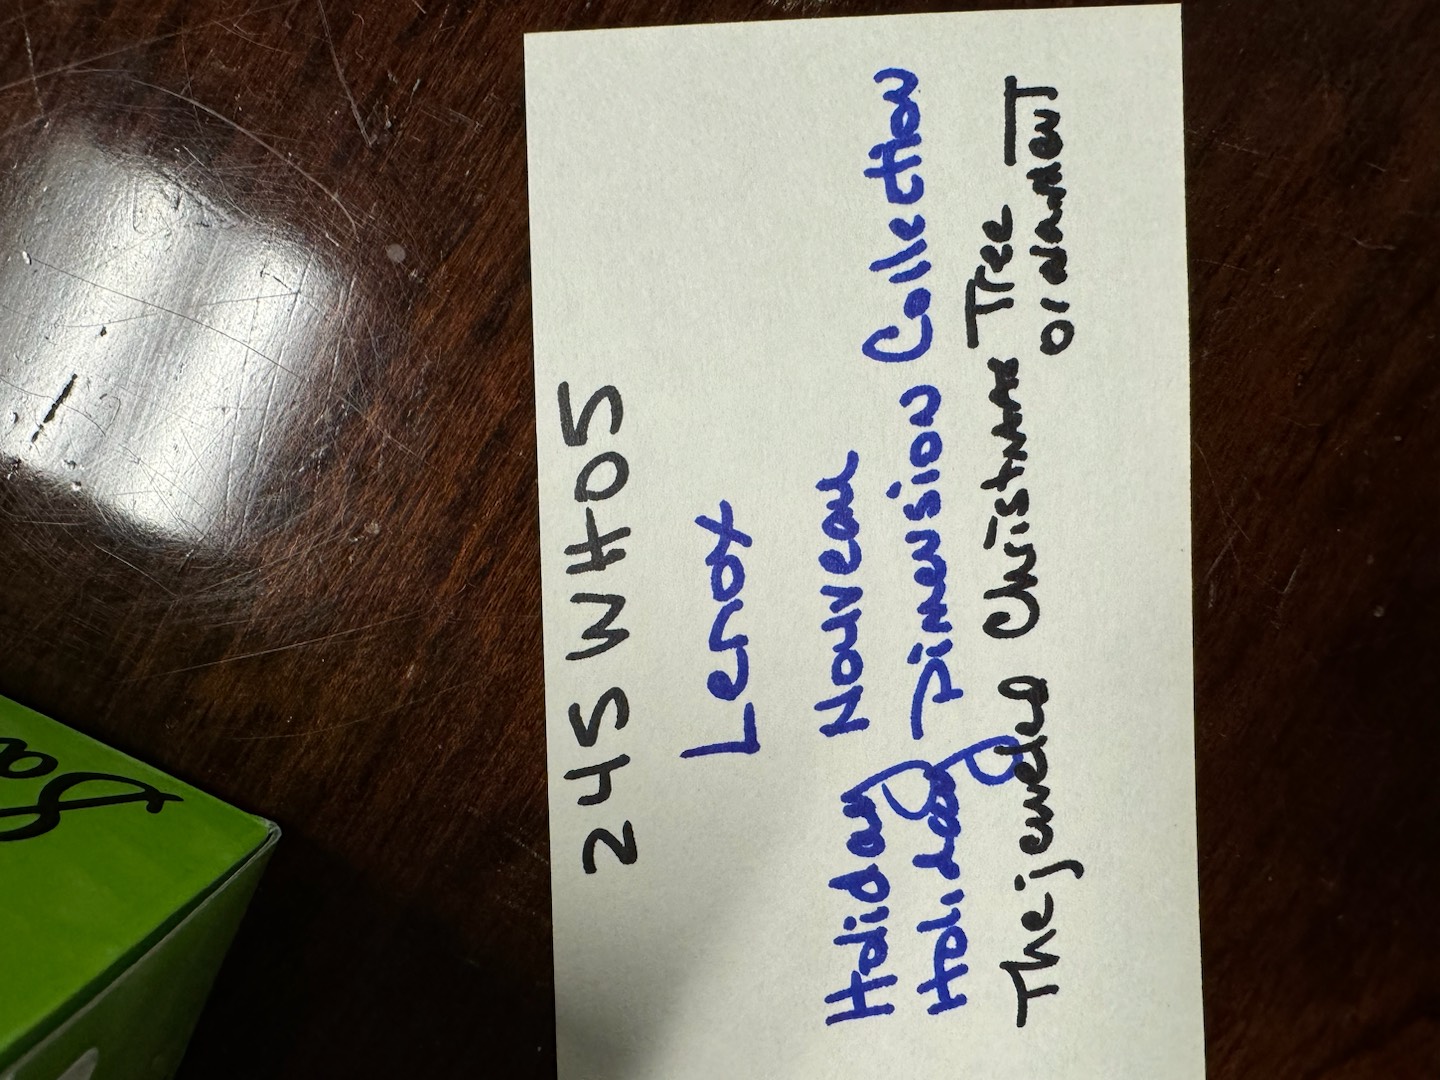 245 WH05
Lenox
Holiday Nouveau
Holiday Dimension Collection
The jeweled Christmas Tree
ornament